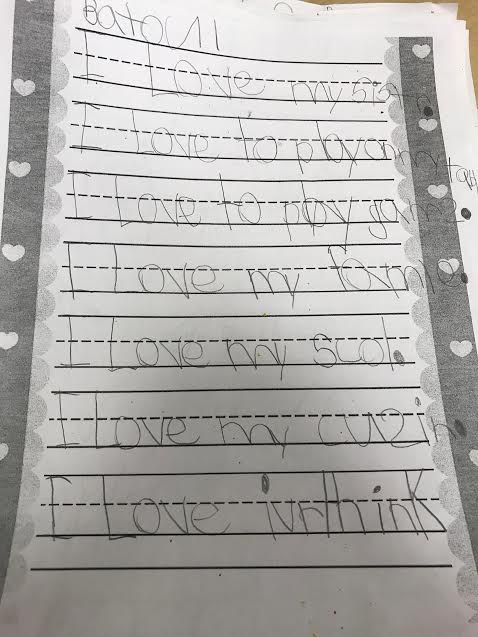 Batoul
I Love my sisn.
I love to play on my tab
I Love to play game.
I Love my famle.
I Love my scol.
I love my cuzin.
I Love ivrthink